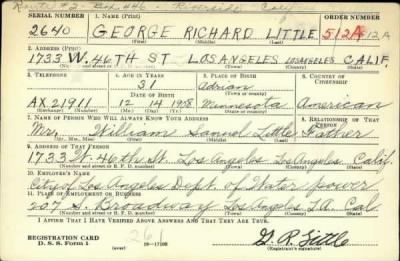 Route #2 - Box #46 - Riverside Calif
SERIAL NUMBER 1. NAME (Print) ORDER NUMBER
2640 GEORGE RICHARD LITTLE 512A 12A
(First) (Middle) (Last)
2. ADDRESS (Print)
1733 W. 46TH ST. LOS ANGELES LOS ANGELES CALIF.
(Number and street or R. F. D. number) (Town) (County) (State)
3. TELEPHONE 4. AGE IN YEARS 5. PLACE OF BIRTH 6. COUNTRY OF CITIZENSHIP
31 Adrian
DATE OF BIRTH (Town or county)
AX 21911 12 14 1908 Minnesota American
(Exchange) (No.) (Mo.) (Day) (Yr.) (State or country)
7. NAME OF PERSON WHO WILL ALWAYS KNOW YOUR ADDRESS 8. RELATIONSHIP OF THAT PERSON
Mr. William Samuel Little Father
(Mr., Mrs., Miss) (First) (Middle) (Last)
9. ADDRESS OF THAT PERSON
1733 W. 46th St. Los Angeles Los Angeles Calif.
(Number and street or R. F. D. number) (Town) (County) (State)
10. EMPLOYER'S NAME
City of Los Angeles Dept. of Water & power
11. PLACE OF EMPLOYMENT OR BUSINESS
207 S. Broadway Los Angeles L.A. Cal.
(Number and street or R. F. D. number) (Town) (County) (State)
I AFFIRM THAT I HAVE VERIFIED ABOVE ANSWERS AND THAT THEY ARE TRUE.
REGISTRATION CARD
D. S. S. Form 1 (over) 16—17105
261
G. R. Little
(Registrant's signature)